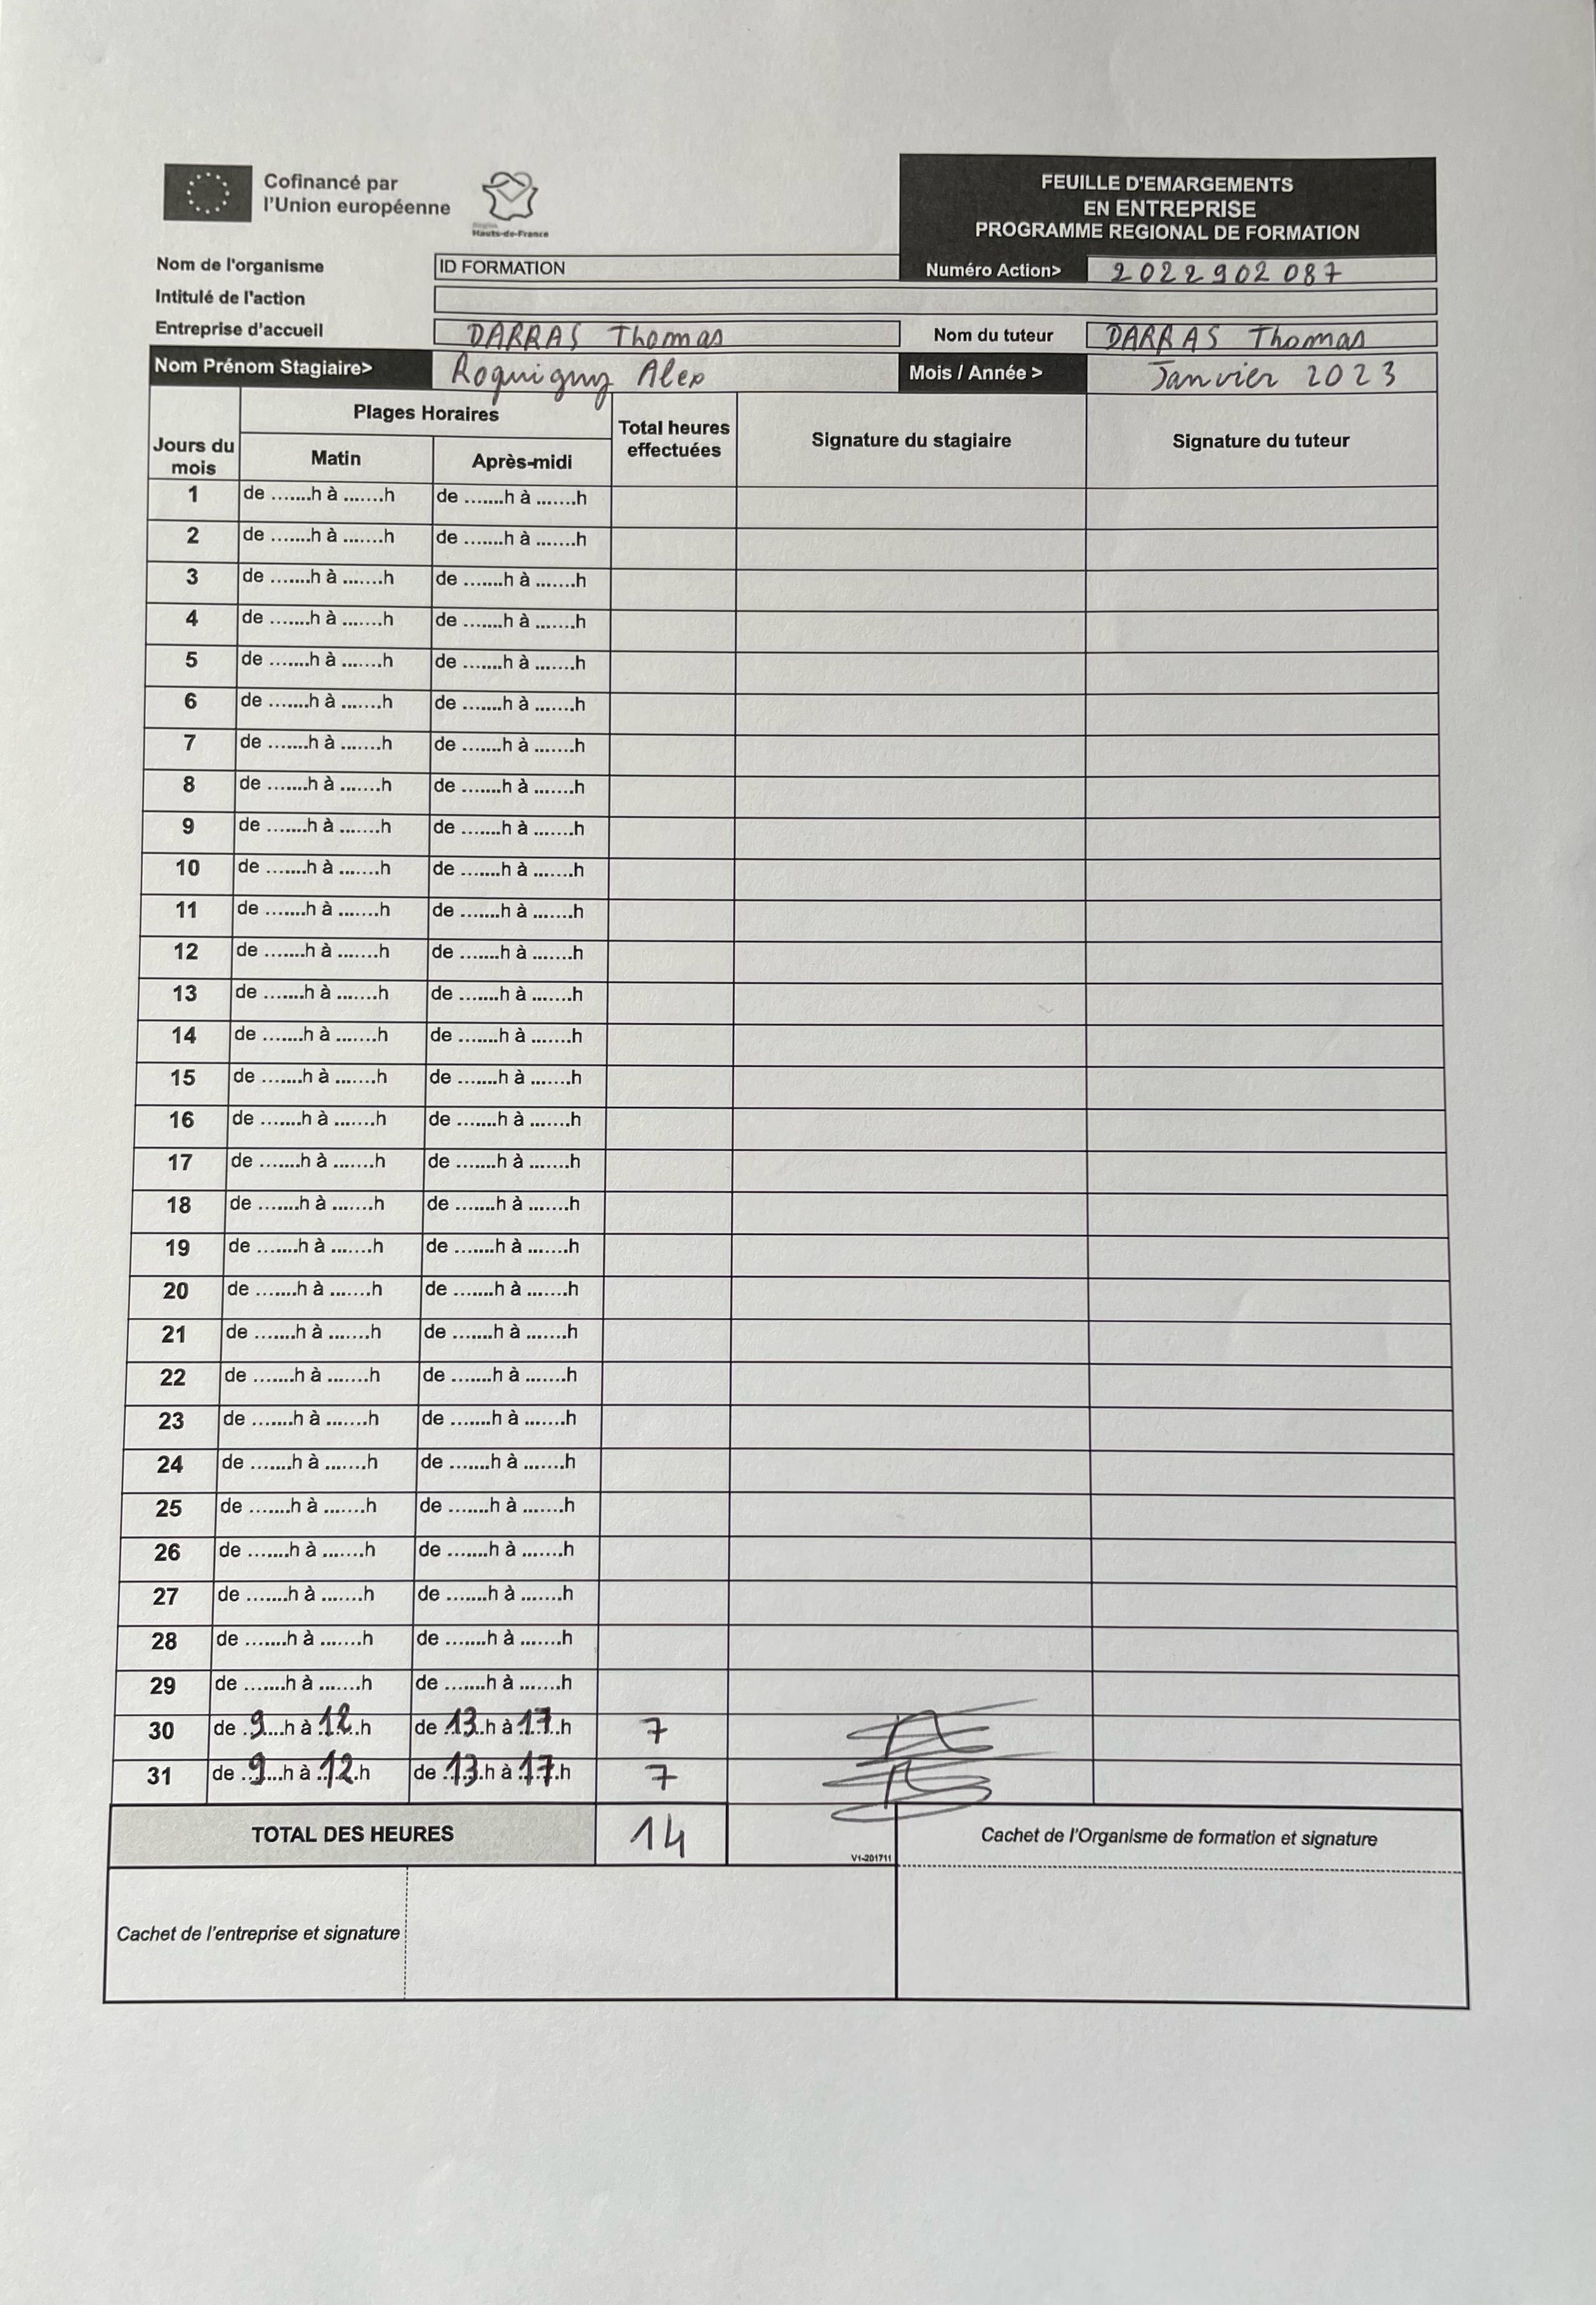 Cofinancé par
l'Union européenne
Région
Hauts-de-France
FEUILLE D'EMARGEMENTS
EN ENTREPRISE
PROGRAMME REGIONAL DE FORMATION
Nom de l'organisme ID FORMATION Numéro Action> 2022902087
Intitulé de l'action
Entreprise d'accueil DARRAS Thomas Nom du tuteur DARRAS Thomas
Nom Prénom Stagiaire> Roquigny Alex Mois / Année > Janvier 2023
Jours du mois Plages Horaires Total heures effectuées Signature du stagiaire Signature du tuteur
Matin Après-midi
1 de .......h à .......h de .......h à .......h
2 de .......h à .......h de .......h à .......h
3 de .......h à .......h de .......h à .......h
4 de .......h à .......h de .......h à .......h
5 de .......h à .......h de .......h à .......h
6 de .......h à .......h de .......h à .......h
7 de .......h à .......h de .......h à .......h
8 de .......h à .......h de .......h à .......h
9 de .......h à .......h de .......h à .......h
10 de .......h à .......h de .......h à .......h
11 de .......h à .......h de .......h à .......h
12 de .......h à .......h de .......h à .......h
13 de .......h à .......h de .......h à .......h
14 de .......h à .......h de .......h à .......h
15 de .......h à .......h de .......h à .......h
16 de .......h à .......h de .......h à .......h
17 de .......h à .......h de .......h à .......h
18 de .......h à .......h de .......h à .......h
19 de .......h à .......h de .......h à .......h
20 de .......h à .......h de .......h à .......h
21 de .......h à .......h de .......h à .......h
22 de .......h à .......h de .......h à .......h
23 de .......h à .......h de .......h à .......h
24 de .......h à .......h de .......h à .......h
25 de .......h à .......h de .......h à .......h
26 de .......h à .......h de .......h à .......h
27 de .......h à .......h de .......h à .......h
28 de .......h à .......h de .......h à .......h
29 de .......h à .......h de .......h à .......h
30 de 9 h à 12 h de 13 h à 17 h 7
31 de 9 h à 12 h de 13 h à 17 h 7
TOTAL DES HEURES 14 Cachet de l'Organisme de formation et signature
V1-201711
Cachet de l'entreprise et signature